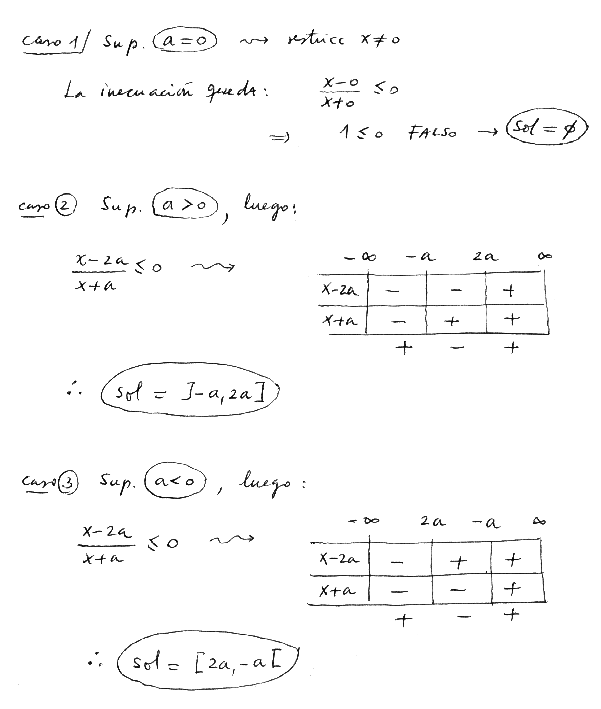 caso 1/ Sup. a=0 ⇝ restricc x≠0
La inecuación queda: (x-0)/(x+0) ≤ 0
⇒ 1 ≤ 0 FALSO → Sol = ϕ
caso 2 Sup. a>0, luego:
(x-2a)/(x+a) ≤ 0 ⇝
-∞ -a 2a ∞
x-2a - - +
x+a - + +
+ - +
∴ sol = ]-a,2a]
caso 3 Sup. a<0, luego:
(x-2a)/(x+a) ≤ 0 ⇝
-∞ 2a -a ∞
x-2a - + +
x+a - - +
+ - +
∴ sol = [2a,-a[